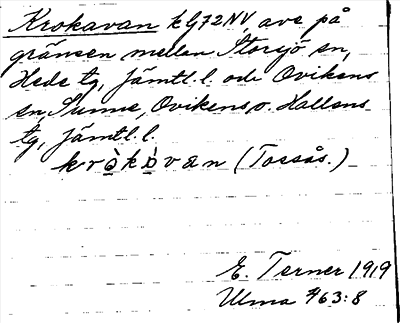 Krokavan k G72NV avs på
gränsen mellan Storsjö sn,
Hede tg, Jämtl. l. och Ovikens
sn, Sunne, Ovikens, o. Hallens
tg, Jämtl. l.
kròkòvan (Tossås.)
E. Terner 1919
Ulma 463:8